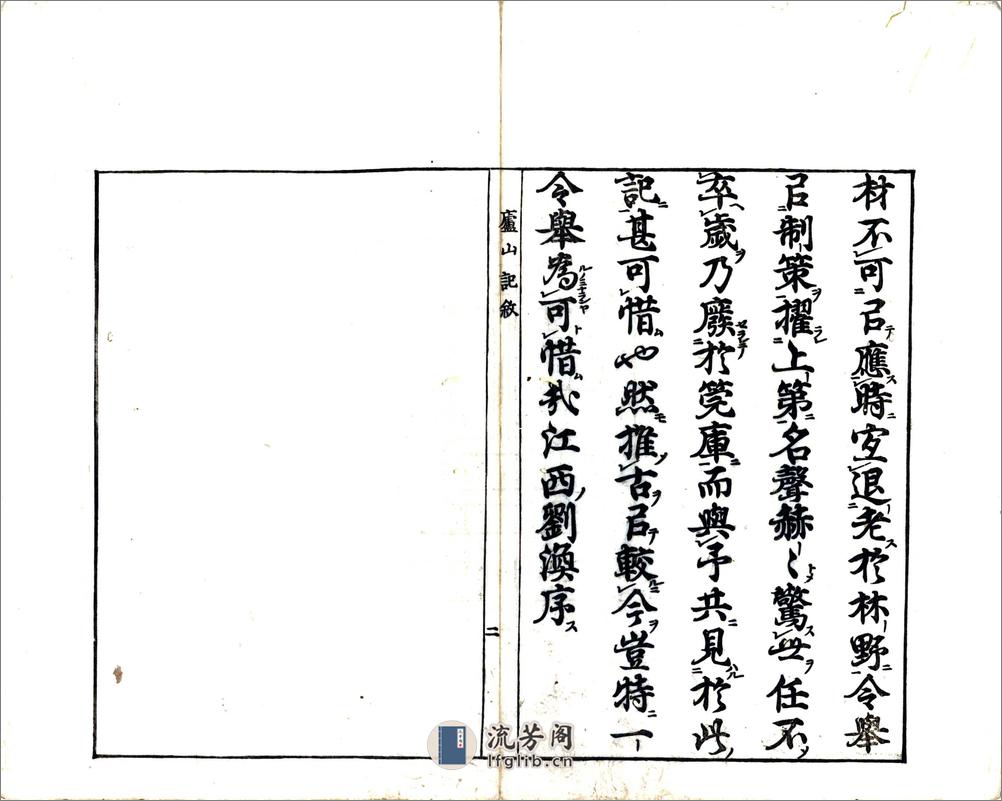 材不可㠯應時宐退老於林野令舉
㠯制策擢上第名聲赫〻驚世任不
卒歲乃廢於筦庫而與予共見於此
記甚可惜也然推古㠯較今豈特一
令舉為可惜哉江西劉渙序
廬山記敘
二
流芳阁
lfglib.cn